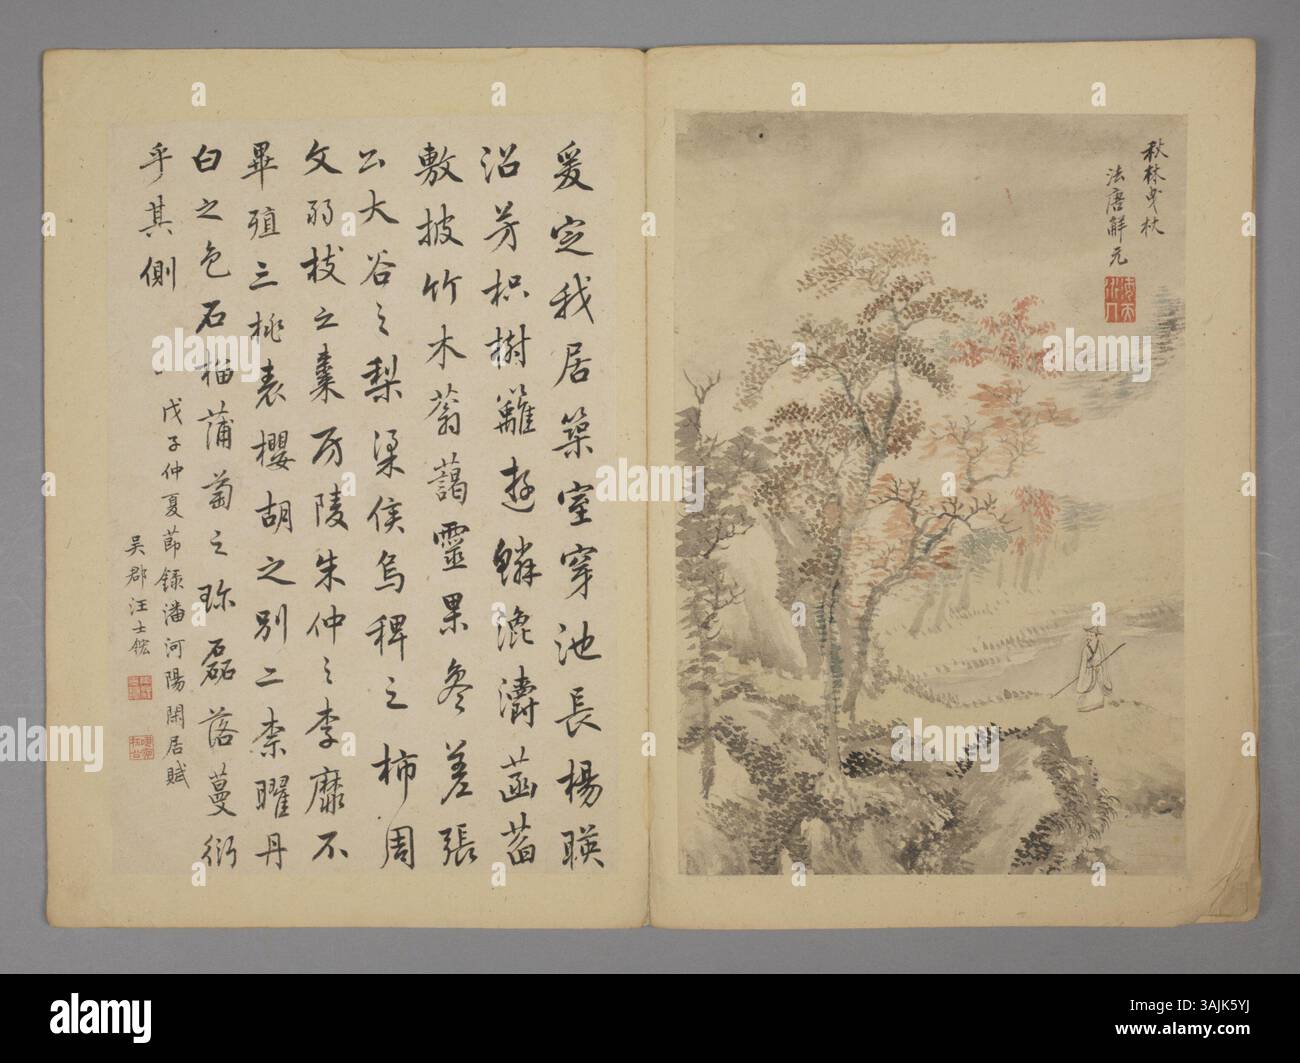 秋林曳杖
法唐解元
爰定我居築室穿池長楊暎
沼芳枳樹籬遊鱗瀺灂菡萏
敷披竹木蓊藹靈果參差張
公大谷之梨梁侯烏椑之柿周
文弱枝之棗房陵朱仲之李靡不
畢殖三桃表櫻胡之別二柰曜丹
白之色石榴蒲萄之珎磊落蔓衍
乎其側
戊子仲夏節録潘河陽閑居賦
吳郡汪士鋐
alamy
Image ID: 3AJK5YJ
www.alamy.com